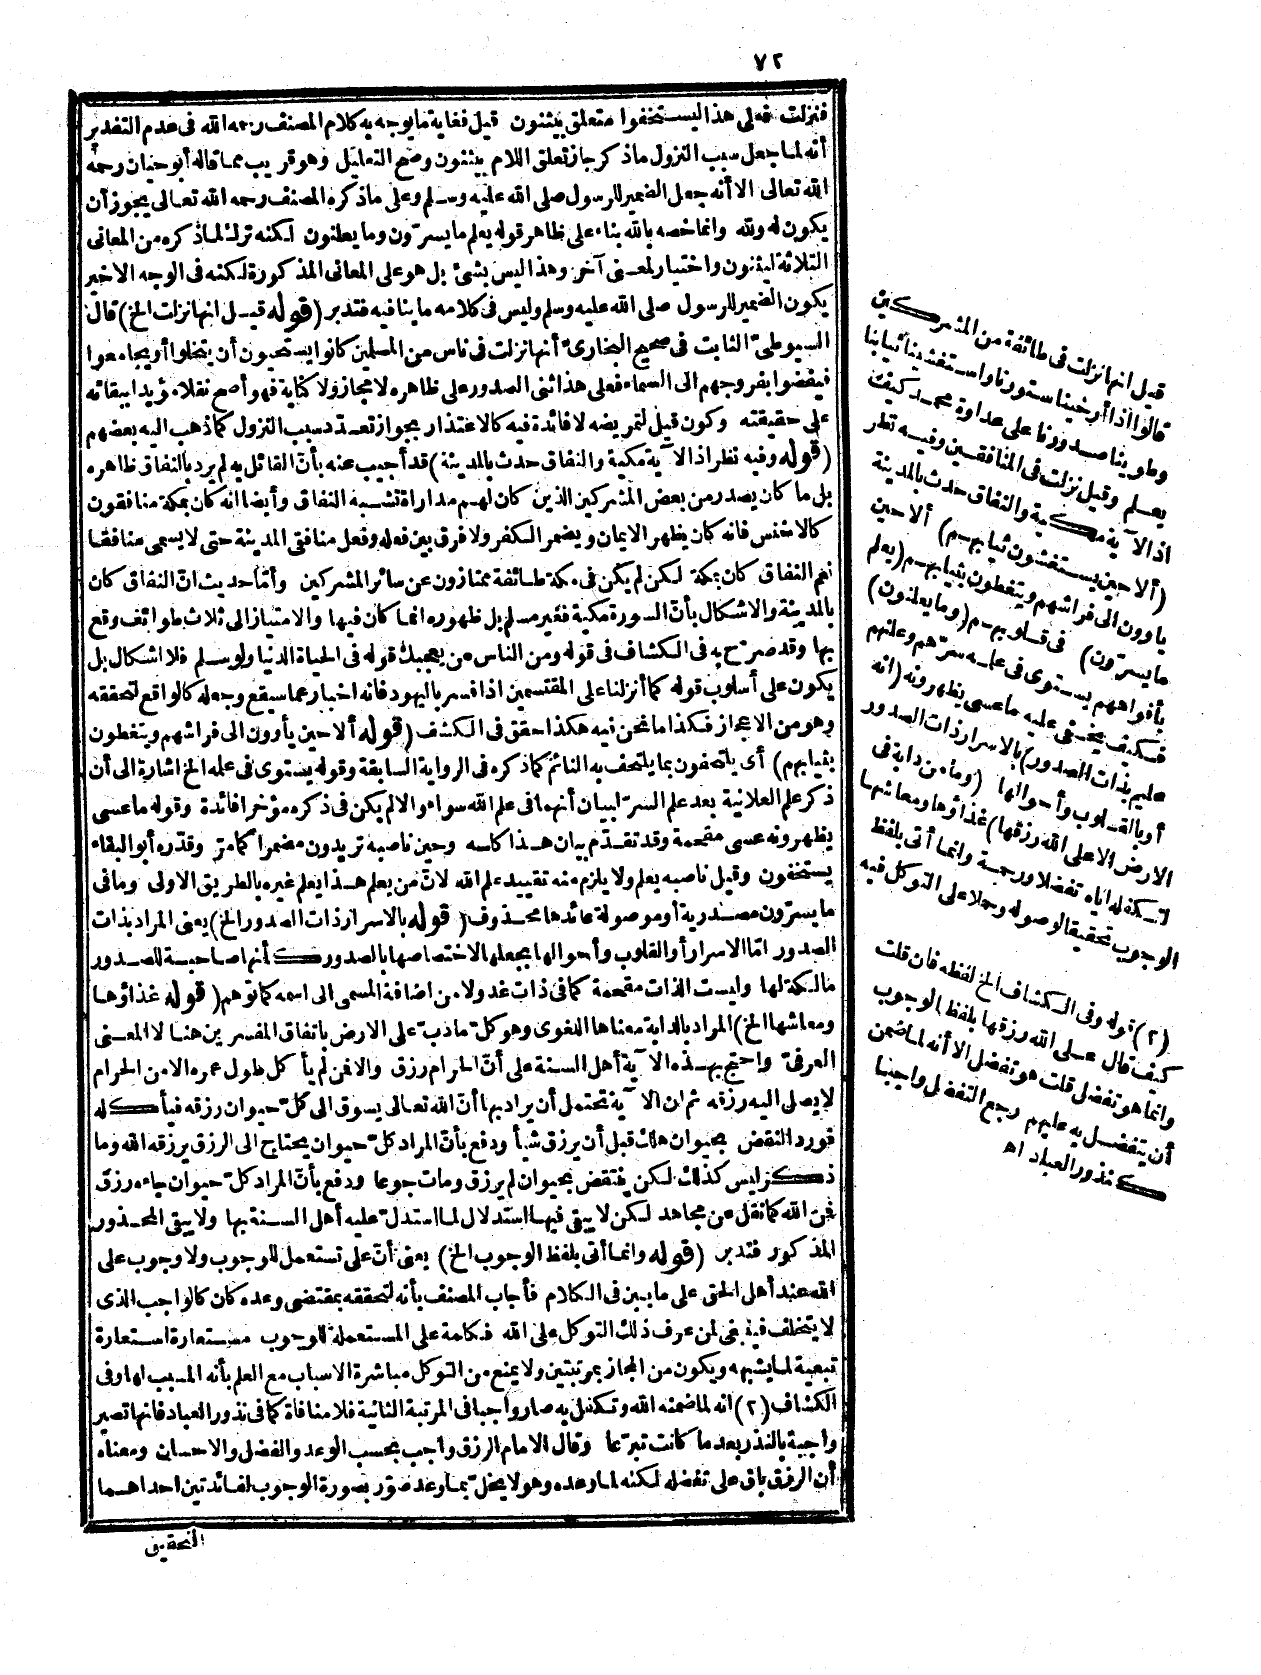 ٧٢
فنزلت فعلى هذا ليستخفوا متعلق بيثنون قيل فغاية ما يوجه به كلام المصنف رحمه الله فى عدم التقدير
أنه لما جعل سبب النزول ما ذكر جاز تعلق اللام بيثنون وصح التعليل وهو قريب مما قاله أبو حيان رحمه
الله تعالى الا أنه جعل الضمير للرسول صلى الله عليه وسلم وعلى ما ذكره المصنف رحمه الله تعالى يجوز أن
يكون له ولله وانما خصه بالله بناء على ظاهر قوله يعلم ما يسرّون وما يعلنون لكنه ترك لما ذكره من المعانى
الثلاثة ليثنون واختيار لمعنى آخر وهذا ليس بشئ بل هو على المعانى المذكورة لكنه فى الوجه الاخير
يكون الضمير للرسول صلى الله عليه وسلم وليس فى كلامه ما ينافيه فتدبر (قوله قيل انها نزلت الخ) قال
السيوطىّ الثابت فى صحيح البخارىّ أنها نزلت فى ناس من المسلمين كانوا يستحيون أن يتخلوا أو يجامعوا
فيفضوا بفروجهم الى السماء فعلى هذا ثنى الصدور على ظاهره لا مجاز ولا كناية فهو أصح نقلا مؤيدا ببقائه
على حقيقته وكون قيل لتمريضه لا فائدة فيه كالاعتذار بجواز تعدّد سبب النزول كما ذهب اليه بعضهم
(قوله وفيه نظر اذ الآية مكية والنفاق حدث بالمدينة) قد أجيب عنه بأنّ القائل به لم يرد بالنفاق ظاهره
بل ما كان يصدر من بعض المشركين الذين كان لهم مداراة تشبه النفاق وأيضا انه كان بمكة منافقون
كالاخنس فانه كان يظهر الايمان ويضمر الكفر ولا فرق بين فعله وفعل منافقى المدينة حتى لا يسمى منافقا
نعم النفاق كان بمكة لكن لم يكن فى مكة طائفة ممتازون عن سائر المشركين وأمّا حديث انّ النفاق كان
بالمدينة والاشكال بأنّ السورة مكية فغير مسلم بل ظهوره انما كان فيها والامتياز الى ثلاث طوائف وقع
بها وقد صرّح به فى الكشاف فى قوله ومن الناس من يعجبك قوله فى الحياة الدنيا ولو سلم فلا اشكال بل
يكون على أسلوب قوله كما أنزلنا على المقتسمين اذا فسر باليهود فانه اخبار عما سيقع وجعله كالواقع لتحققه
وهو من الاعجاز فكذا ما نحن فيه هكذا حقق فى الكشف (قوله ألا حين يأوون الى فراشهم ويتغطون
بثيابهم) أى يلتحفون بما يلتحف به النائم كما ذكره فى الرواية السابقة وقوله يستوى فى علمه الخ اشارة الى أن
ذكر علم العلانية بعد علم السرّ لبيان أنهما فى علم الله سواء والا لم يكن فى ذكره مؤخرا فائدة وقوله ما عسى
يظهرونه عسى مقحمة وقد تقدّم بيان هذا كله وحين ناصبه تريدون مضمرا كما مرّ وقدّره أبو البقاء
يستخفون وقيل ناصبه يعلم ولا يلزم منه تقييد علم الله لانّ من يعلم هذا يعلم غيره بالطريق الاولى وما فى
ما يسرّون مصدرية أو موصولة عائدها محذوف (قوله بالاسرار ذات الصدور الخ) يعنى المراد بذات
الصدور امّا الاسرار أو القلوب وأحوالها بجعلها لاختصاصها بالصدور كأنها صاحبة للصدور
مالكة لها وليست الذات مقحمة كما فى ذات غدو لا من اضافة المسمى الى اسمه كما توهم (قوله غذاؤها
ومعاشها الخ) المراد بالدابة معناها اللغوى وهو كلّ ما دبّ على الارض باتفاق المفسرين هنا لا المعنى
العرفىّ واحتج بهذه الآية أهل السنة على أنّ الحرام رزق والا فمن لم يأكل طول عمره الا من الحرام
لا يصل اليه رزقه ثم ان الآية تحتمل أن يراد بها أنّ الله تعالى يسوق الى كلّ حيوان رزقه فيأكله
فورد النقض بحيوان هلك قبل أن يرزق شيأ ودفع بأنّ المراد كلّ حيوان يحتاج الى الرزق يرزقه الله وما
ذكر ليس كذلك لكن ينتقض بحيوان لم يرزق ومات جوعا ودفع بأنّ المراد كلّ حيوان جاءه رزق
فمن الله كما نقل عن مجاهد لكن لا يبقى فيها استدلال لما استدلّ عليه أهل السنة بها ولا يبقى المحذور
المذكور فتدبر (قوله وانما أتى بلفظ الوجوب الخ) يعنى أنّ على تستعمل للوجوب ولا وجوب على
الله عند أهل الحق على ما بين فى الكلام فأجاب المصنف بأنه لتحققه بمقتضى وعده كان كالواجب الذى
لا يتخلف فينبغى لمن عرف ذلك التوكل على الله فكلمة على المستعملة للوجوب مستعارة استعارة
تبعية لما يشبهه ويكون من المجاز بمرتبتين ولا يمنع من التوكل مباشرة الاسباب مع العلم بأنه المسبب لها وفى
الكشاف (٢) انه لما ضمنه الله وتكفل به صار واجبا فى المرتبة الثانية فلا منافاة كما فى نذور العباد فانها تصير
واجبة بالنذر بعد ما كانت تبرّعا وقال الامام الرزق واجب بحسب الوعد والفضل والاحسان ومعناه
أن الرزق باق على تفضله لكنه لما وعده وهو لا يخلّ بما وعد صوّر بصورة الوجوب لفائدتين احداهما
التحقيق
قيل انها نزلت فى طائفة من المشركين
قالوا اذا أرخينا ستورنا واستغشينا ثيابنا
وطوينا صدورنا على عداوة محمد كيف
يعلم وقيل نزلت فى المنافقين وفيه نظر
اذ الآية مكية والنفاق حدث بالمدينة
(ألا حين يستغشون ثيابهم) ألا حين
يأوون الى فراشهم ويتغطون بثيابهم (يعلم
ما يسرّون) فى قلوبهم (وما يعلنون)
بأفواههم يستوى فى علمه سرّهم وعلنهم
فكيف يخفى عليه ما عسى يظهرونه (انه
عليم بذات الصدور) بالاسرار ذات الصدور
أو بالقلوب وأحوالها (وما من دابة فى
الارض الا على الله رزقها) غذاؤها ومعاشها
لتكفله اياه تفضلا ورحمة وانما أتى بلفظ
الوجوب تحقيقا لوصوله وحملا على التوكل فيه
(٢) قوله وفى الكشاف الخ لفظه فان قلت
كيف قال على الله رزقها بلفظ الوجوب
وانما هو تفضل قلت هو تفضل الا أنه لما ضمن
أن يتفضل به عليهم رجع التفضل واجبا
كنذور العباد اه